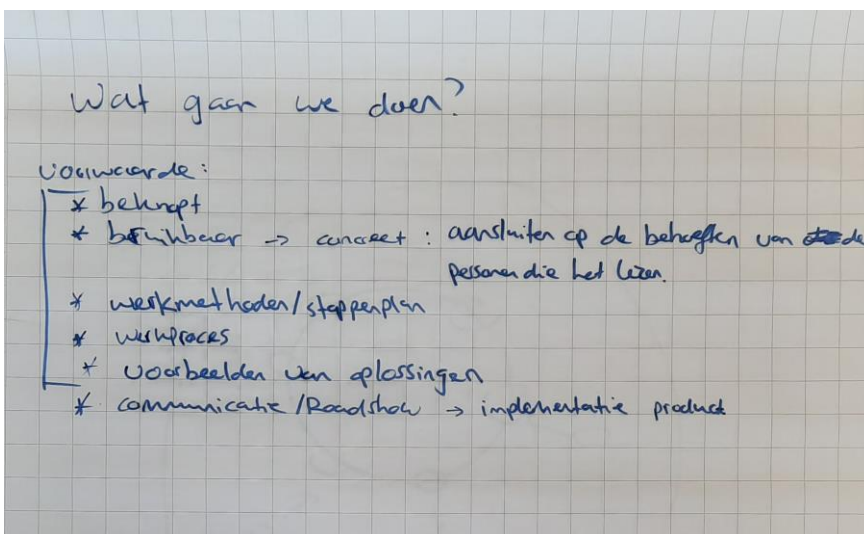 Wat gaan we doen?
voorwaarde:
* beknopt
* bruikbaar → concreet : aansluiten op de behoeften van de
personen die het lezen.
* werkmethoden/stappenplan
* werkproces
* voorbeelden van oplossingen
* communicatie/Roadshow → implementatie product